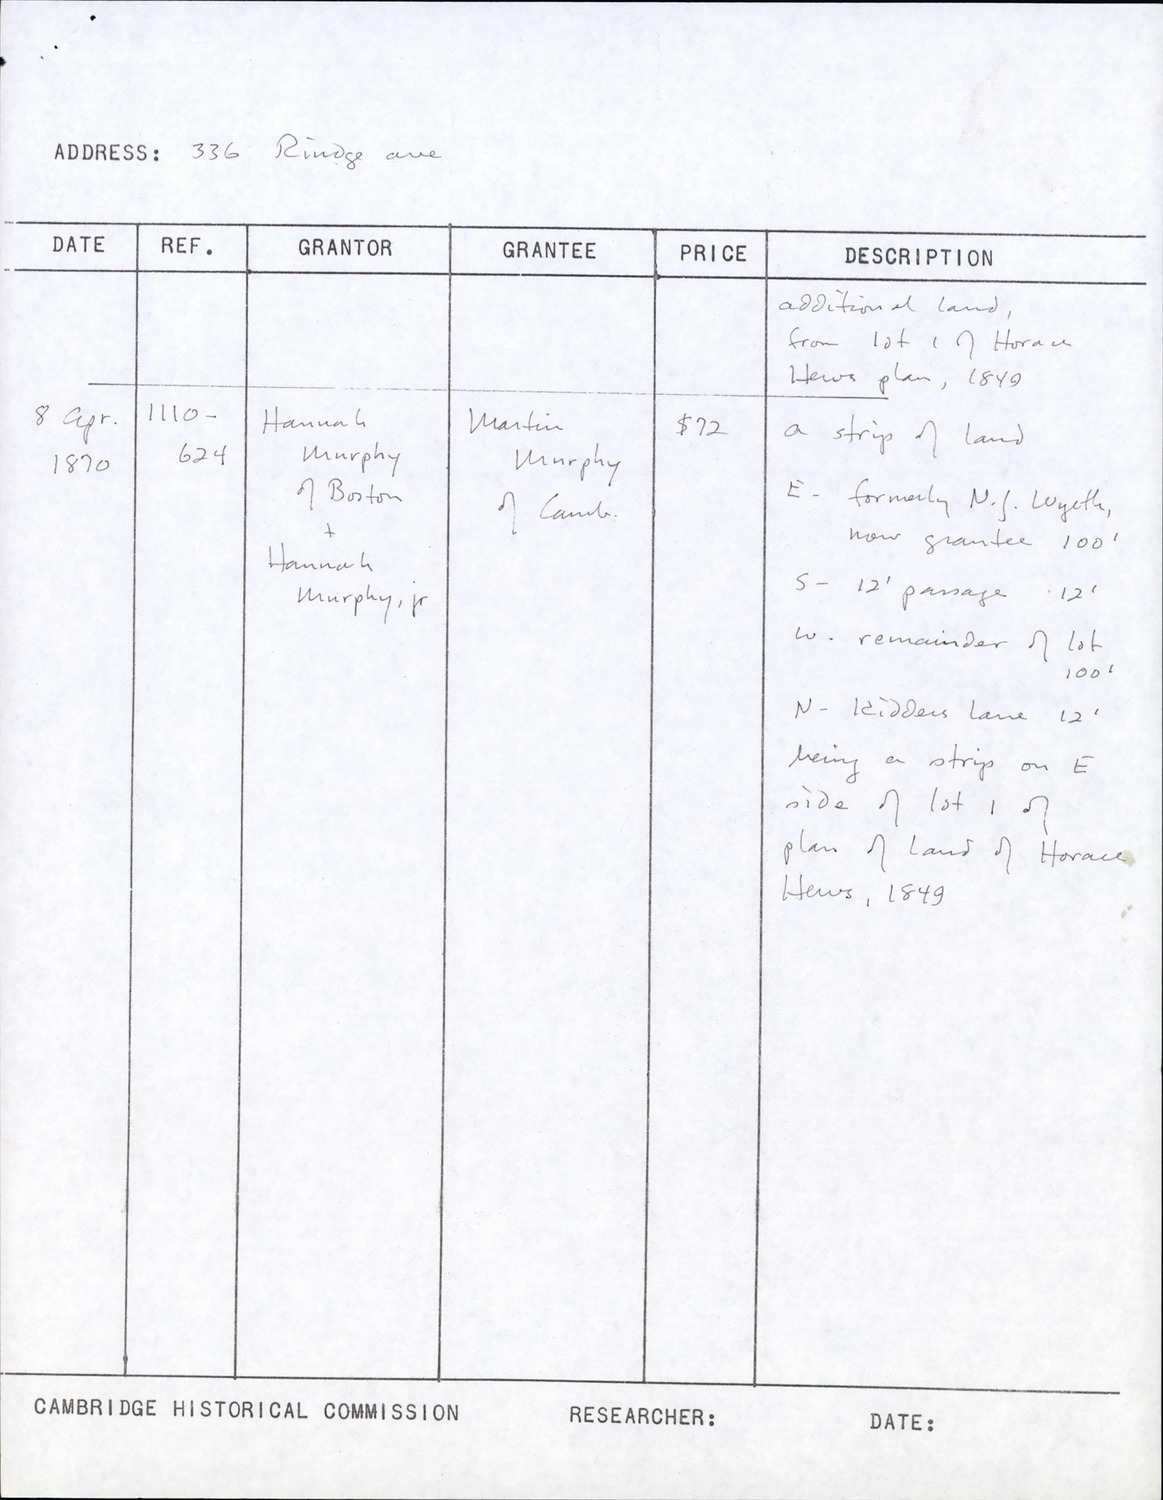 ADDRESS: 336 Rindge ave
DATE REF. GRANTOR GRANTEE PRICE DESCRIPTION
additional land,
from lot 1 of Horace
Hews plan, 1849
8 Apr. 1110- Hannah Martin $72 a strip of land
1870 624 Murphy Murphy
of Boston of Camb.
+
Hannah
Murphy, jr
E - formerly N.J. Wyeth,
now grantee 100'
S - 12' passage 12'
W - remainder of lot
100'
N - Kidders Lane 12'
being a strip on E
side of lot 1 of
plan of land of Horace
Hews, 1849
CAMBRIDGE HISTORICAL COMMISSION RESEARCHER: DATE: